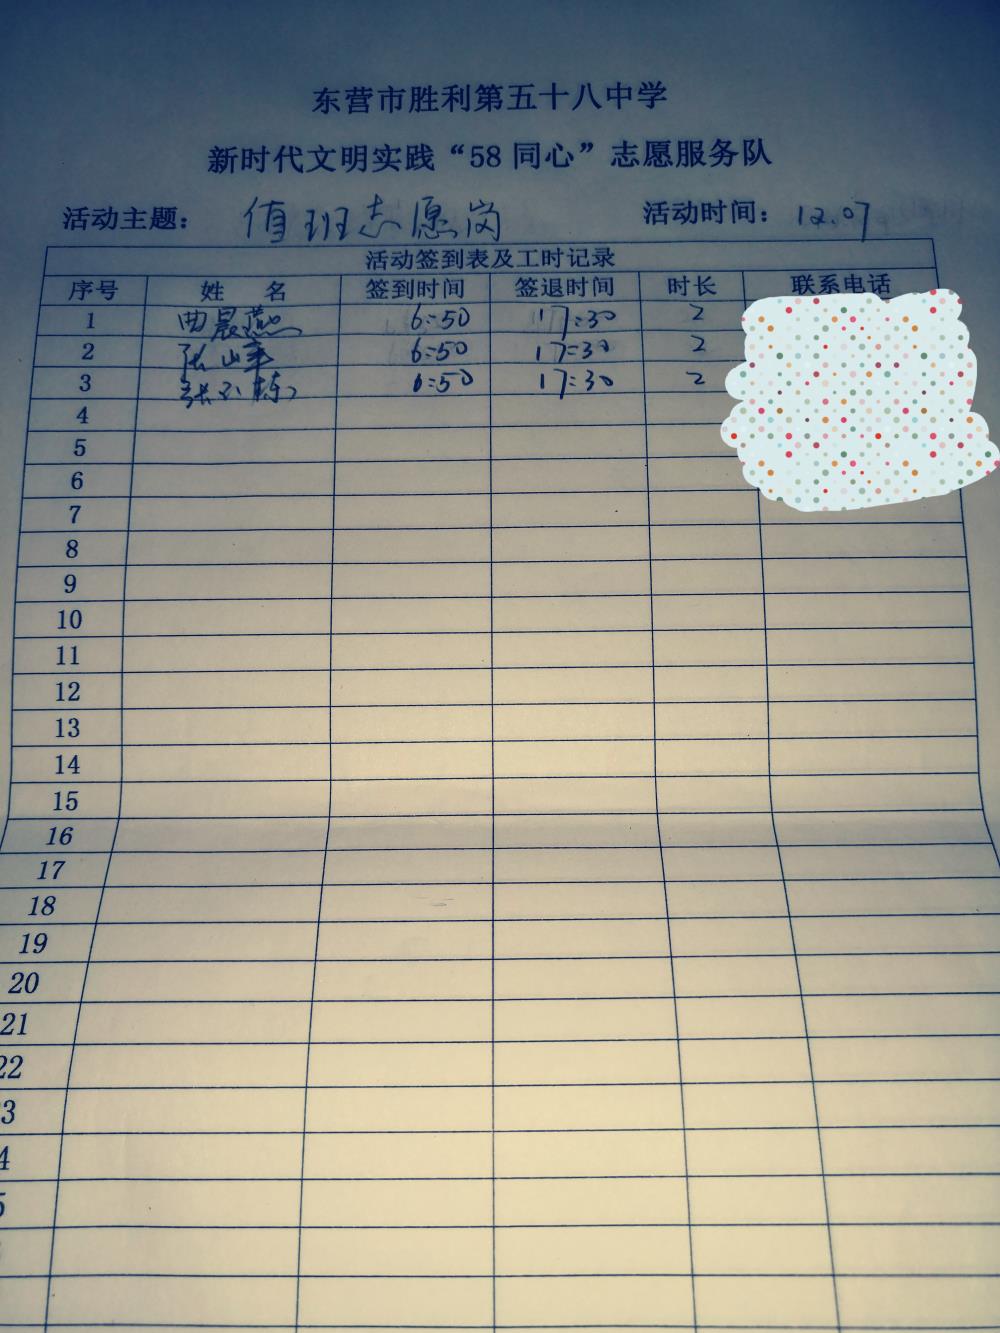 东营市胜利第五十八中学
新时代文明实践“58 同心”志愿服务队
活动主题： 值班志愿岗 活动时间： 12.07
活动签到表及工时记录
序号 姓 名 签到时间 签退时间 时长 联系电话
1 曲晨燕 6:50 17:30 2
2 张 6:50 17:30 2
3 张 6:50 17:30 2
4
5
6
7
8
9
10
11
12
13
14
15
16
17
18
19
20
21
22
3
4
5